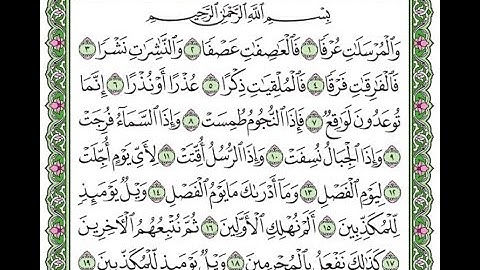 بِسْمِ اللَّهِ الرَّحْمَٰنِ الرَّحِيمِ
وَالْمُرْسَلَاتِ عُرْفًا ١ فَالْعَاصِفَاتِ عَصْفًا ٢ وَالنَّاشِرَاتِ نَشْرًا ٣
فَالْفَارِقَاتِ فَرْقًا ٤ فَالْمُلْقِيَاتِ ذِكْرًا ٥ عُذْرًا أَوْ نُذْرًا ٦ إِنَّمَا
تُوعَدُونَ لَوَاقِعٌ ٧ فَإِذَا النُّجُومُ طُمِسَتْ ٨ وَإِذَا السَّمَاءُ فُرِجَتْ
٩ وَإِذَا الْجِبَالُ نُسِفَتْ ١٠ وَإِذَا الرُّسُلُ أُقِّتَتْ ١١ لِأَيِّ يَوْمٍ أُجِّلَتْ
١٢ لِيَوْمِ الْفَصْلِ ١٣ وَمَا أَدْرَاكَ مَا يَوْمُ الْفَصْلِ ١٤ وَيْلٌ يَوْمَئِذٍ
لِلْمُكَذِّبِينَ ١٥ أَلَمْ نُهْلِكِ الْأَوَّلِينَ ١٦ ثُمَّ نُتْبِعُهُمُ الْآخِرِينَ
١٧ كَذَٰلِكَ نَفْعَلُ بِالْمُجْرِمِينَ ١٨ وَيْلٌ يَوْمَئِذٍ لِلْمُكَذِّبِينَ ١٩